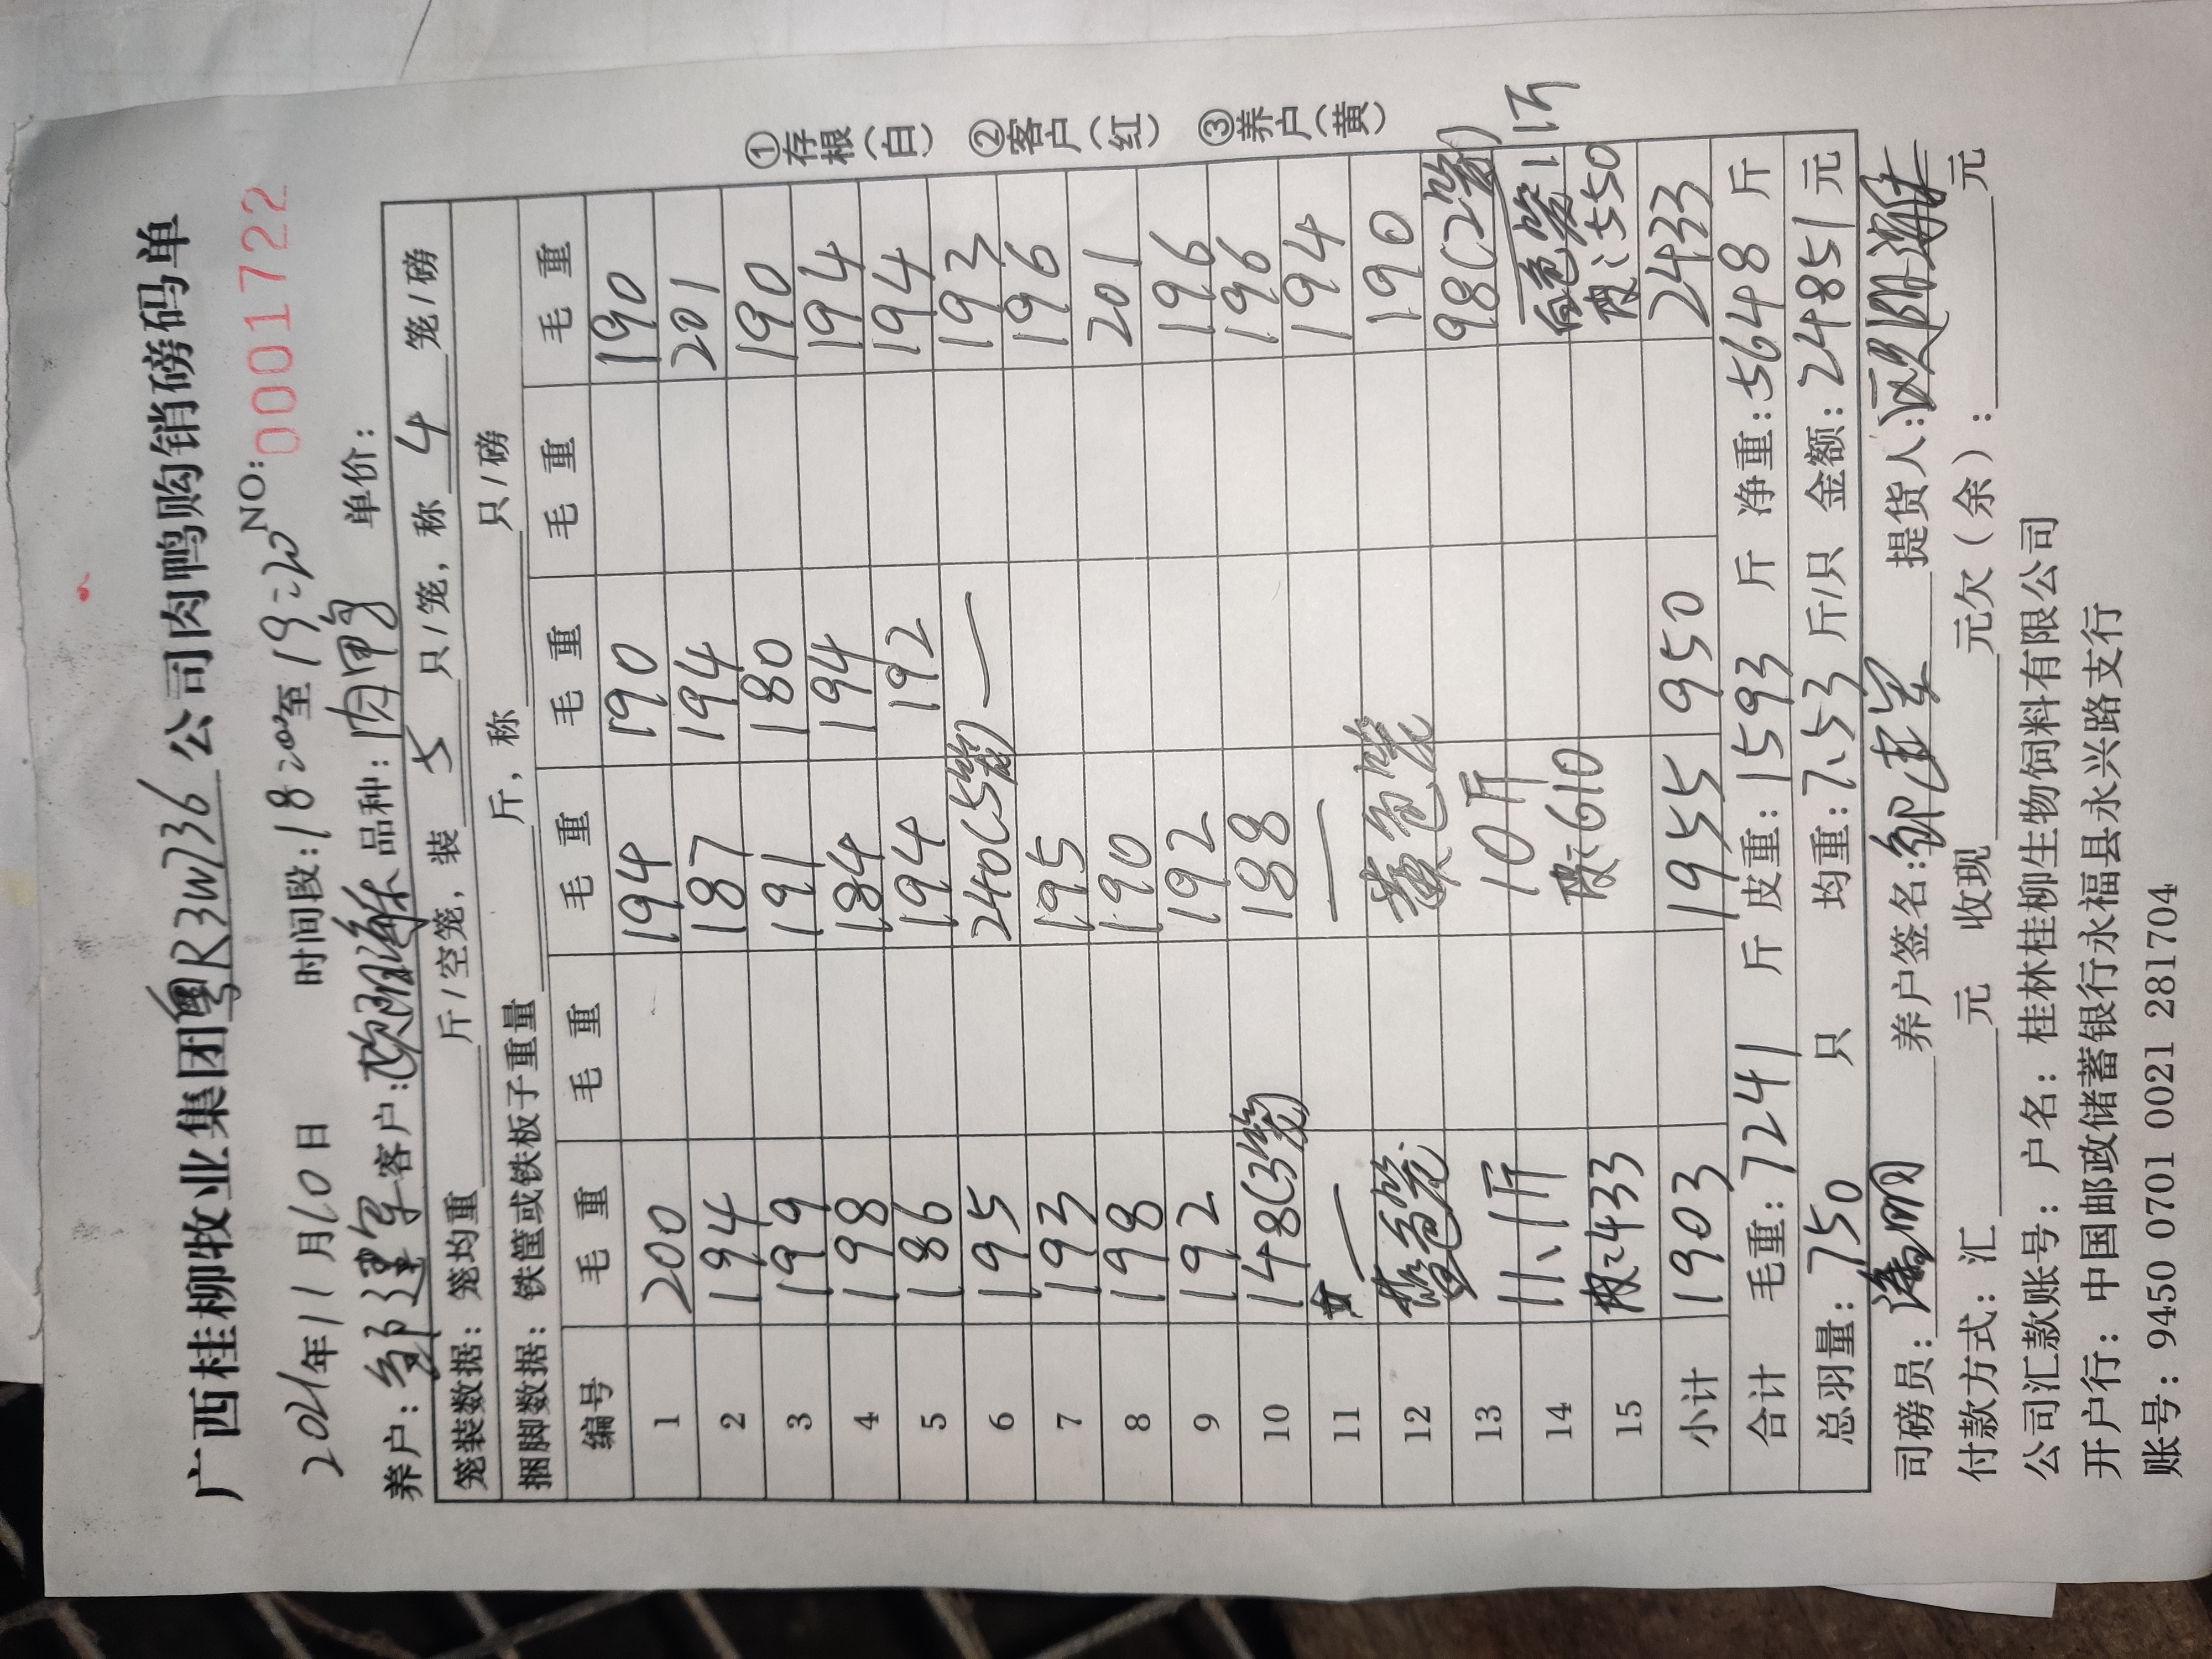 广西桂柳牧业集团粤R3W736公司肉鸭购销磅码单
NO: 0001722
2021年11月10日 时间段:18:20至19:20
养户:邹建军 客户:欧阳海 品种:肉鸭 单价:
笼装数据: 笼均重 斤/空笼, 装 5 只/笼, 称 4 笼/磅
捆脚数据: 铁筐或铁板子重量 斤, 称 只/磅
编号 毛重 毛重 毛重 毛重 毛重 毛重
1 200 194 190 190
2 194 187 194 201
3 199 191 180 190
4 198 184 194 194
5 186 194 192 194
6 195 240(5笼) — 192
7 193 195 196
8 198 190 201
9 192 192 196
10 148(3笼) 188 196
11 — — 194
12 蓝色笼 黄色笼 190
13 11.1斤 10斤 98(2笼)
14 皮:610 白色笼1 1斤
15 皮:433 皮:550
小计 1903 1955 950 2433
合计 毛重:7241 斤 皮重:1593 斤 净重:5648 斤
总羽量:750 只 均重:7.53 斤/只 金额:24851元
司磅员: 养户签名:邹建军 提货人:欧阳海
付款方式:汇 元 收现 元欠(余): 元
公司汇款账号:户名:桂林桂柳生物饲料有限公司
开户行:中国邮政储蓄银行永福县永兴路支行
账号:9450 0701 0021 281704
①存根(白) ②客户(红) ③养户(黄)